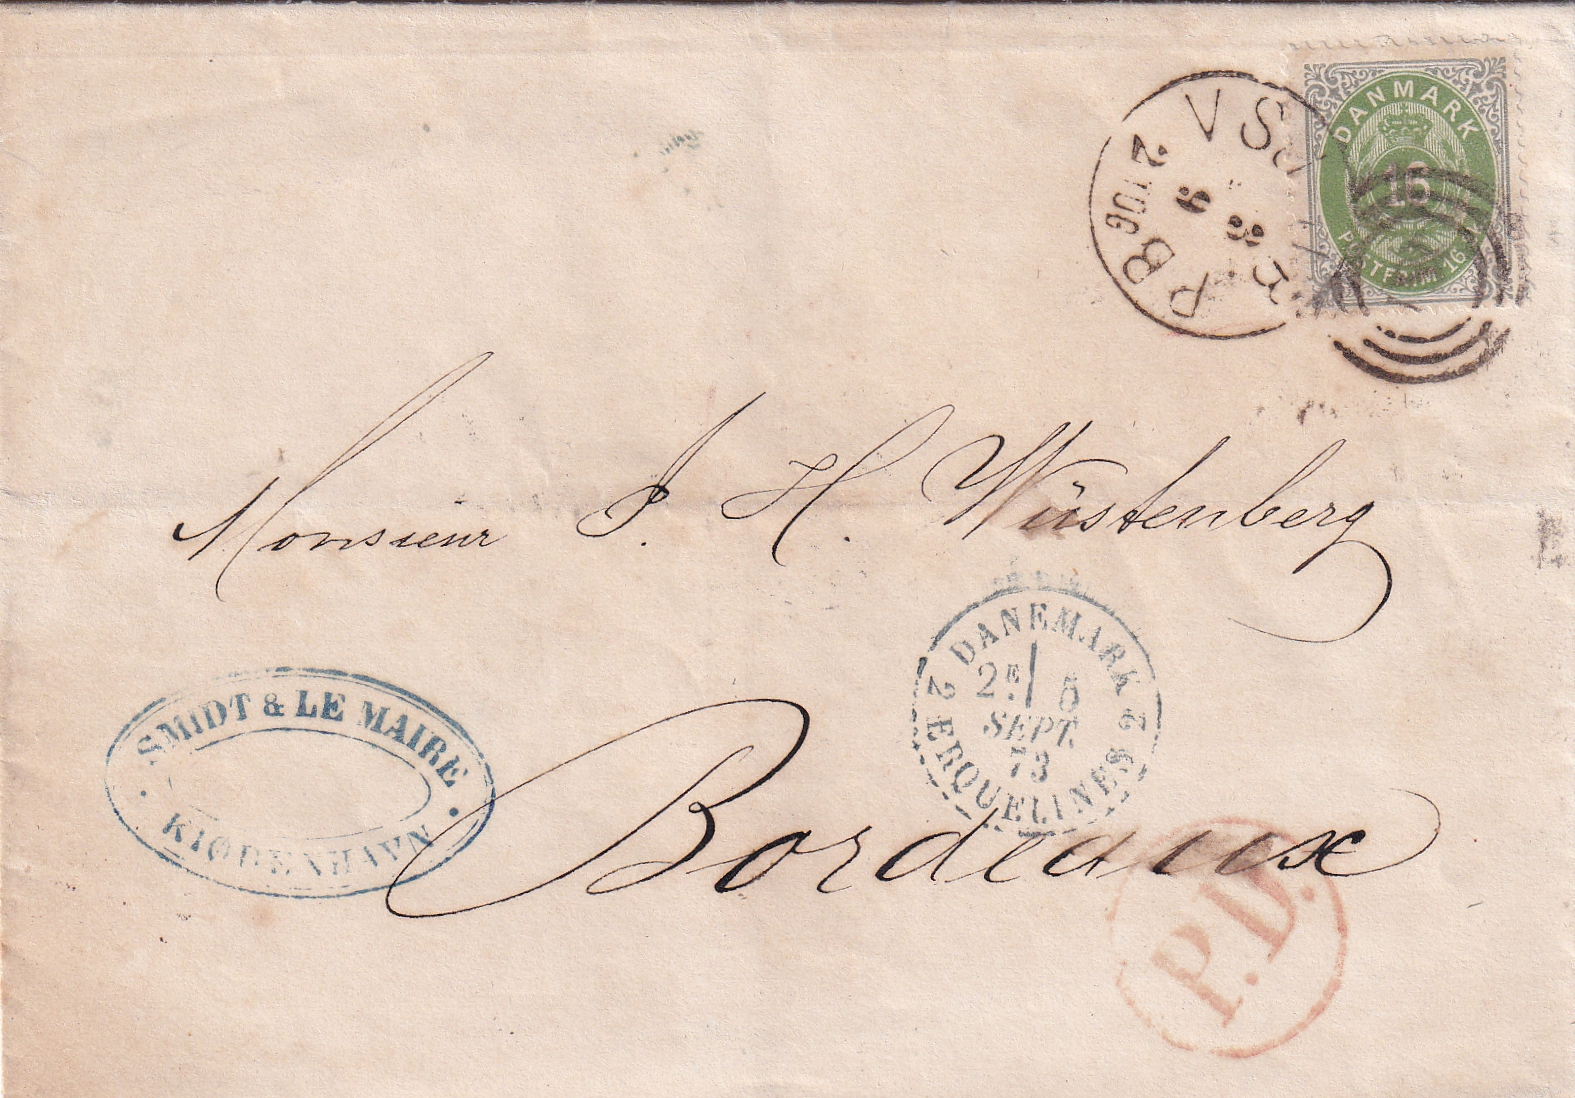 DANMARK
16
POSTFRIM 16
V SJ
P B
2 TOG
Monsieur J. H. Wüstenberg
DANEMARK
2E / 5
SEPT.
73
2 ERQUELINES 2
SMIDT & LE MAIRE
KIØBENHAVN
Bordeaux
P.D.